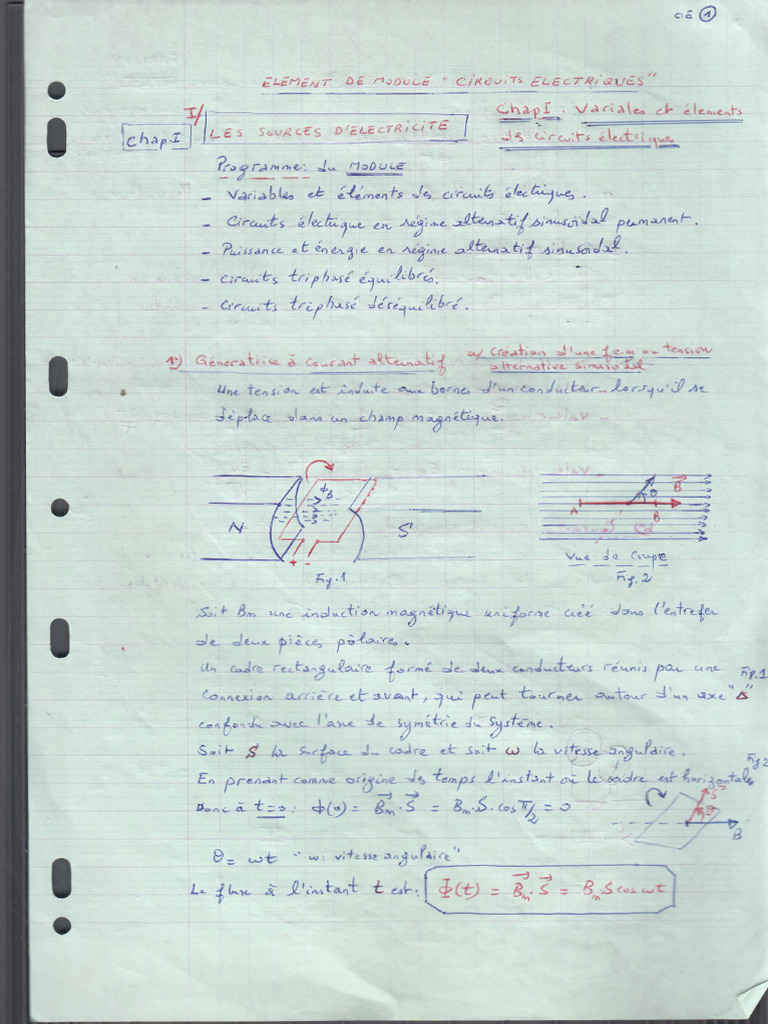 CIE 1
ELEMENT DE MODULE "CIRCUITS ELECTRIQUES"
I/
Chap.I
LES SOURCES D'ELECTRICITE
Chap I : Variales et élements
des circuits électriques
Programme: du MODULE
- Variables et éléments des circuits électriques.
- Circuits électrique en régime alternatif sinusoïdal permanent.
- Puissance et énergie en régime alternatif sinusoïdal.
- Circuits triphasé équilibrés.
- Circuits triphasé déséquilibré.
1°) Géneratrice à courant alternatif
a/ Création d'une f.e.m ou tension
alternative sinusoïdal
Une tension est induite aux bornes d'un conducteur lorsqu'il se
déplace dans un champ magnétique.
N
ϕB
S
+ -
Fig.1
A
θ
B
B
Vue de Coupe
Fig.2
Soit Bm une induction magnétique uniforme créé dans l'entrefer
de deux pièces pôlaires.
Un cadre rectangulaire formé de deux conducteurs réunis par une Fig.1
connexion arrière et avant, qui peut tourner autour d'un axe "Δ"
confondu avec l'axe de symétrie du Système.
Soit S la surface du cadre et soit ω la vitesse angulaire.
Fig2
En prenant comme origine des temps l'instant où le cadre est horizontales
Donc à t=0: ϕ(0) = B⃗m · S⃗ = Bm·S·cos π/2 = 0
S
θ
B
θ = ωt "ω: vitesse angulaire"
Le flux à l'instant t est: Φ(t) = B⃗m·S⃗ = Bm·S cos ωt